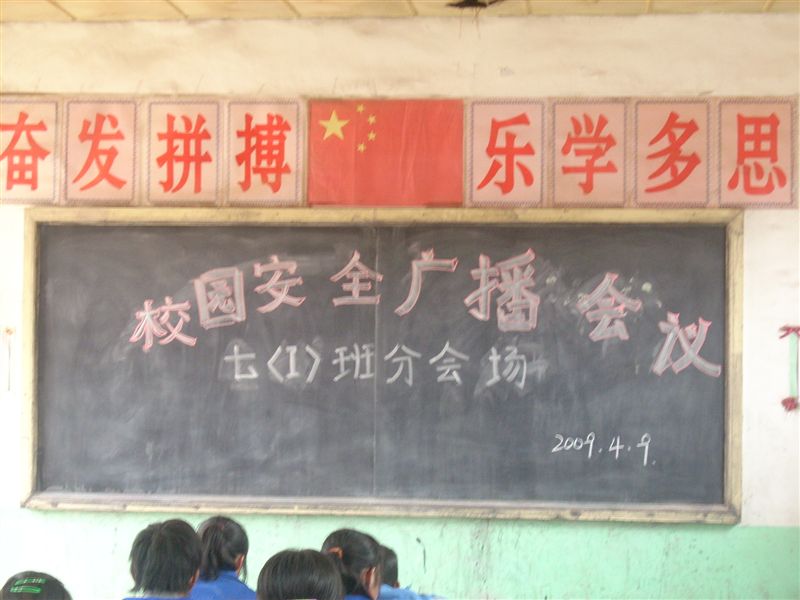 奋发拼搏 乐学多思
校园安全广播会议
七〈1〉班分会场
2009.4.9.